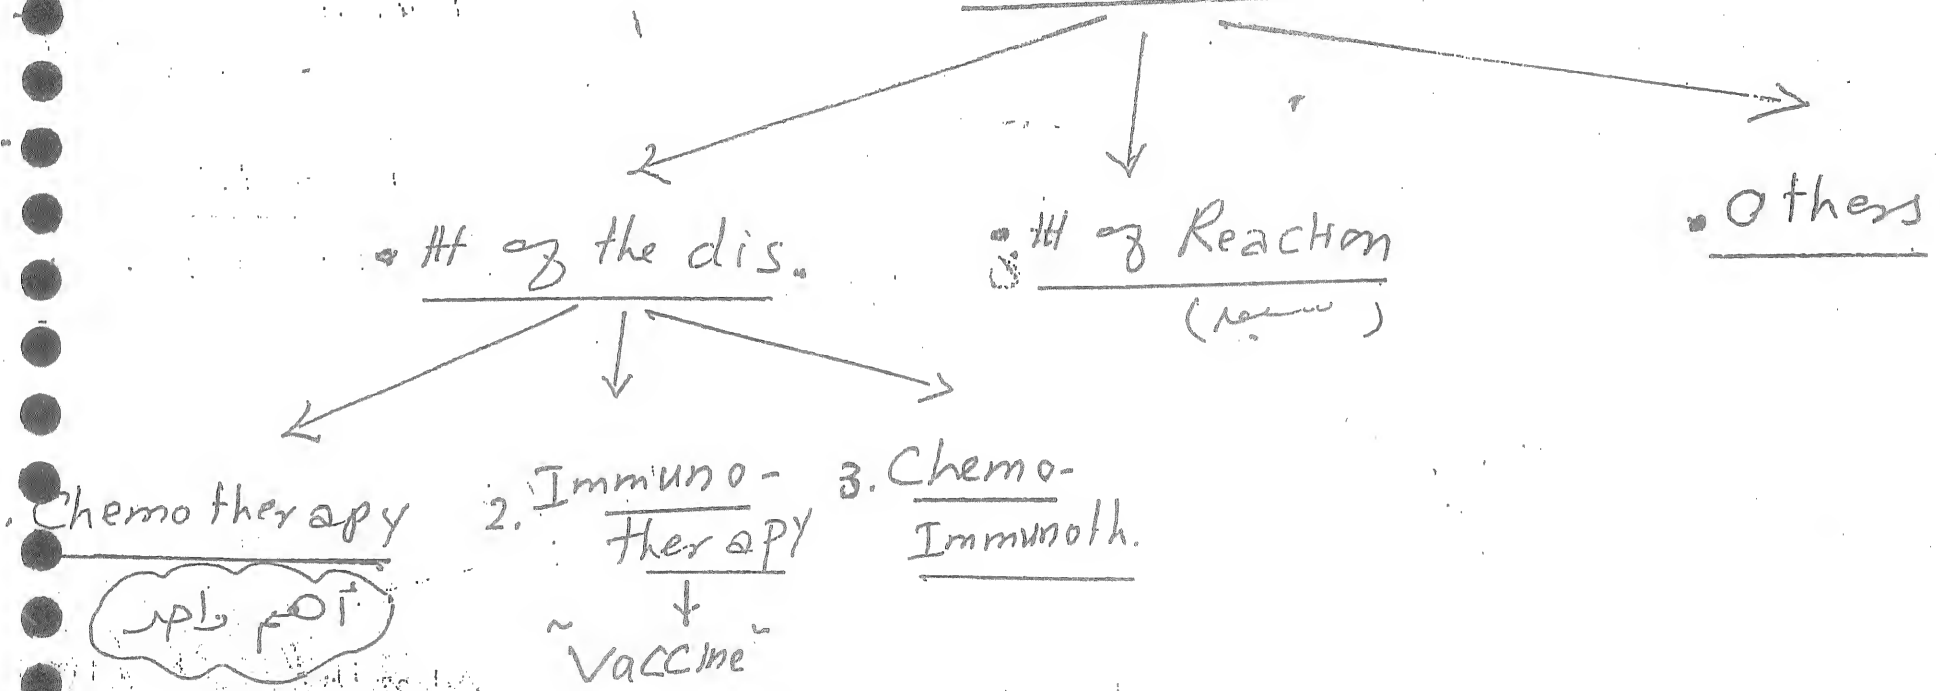 • ttt of the dis.
• ttt of Reaction
• Others
. Chemotherapy
أهم واحد
2. Immuno-
therapy
"Vaccine"
3. Chemo-
Immunoth.